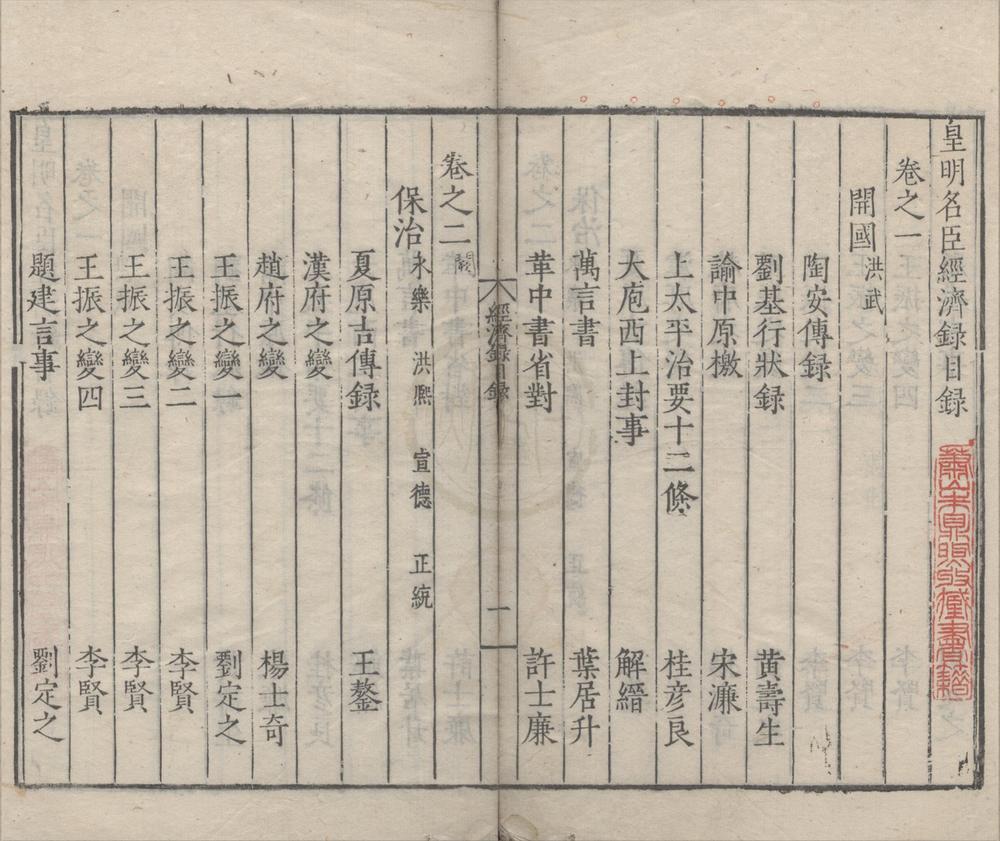 皇明名臣經濟録目録
卷之一
開國 洪武
陶安傳録
劉基行狀録 黄壽生
諭中原檄 宋濂
上太平治要十二條 桂彦良
大庖西上封事 解縉
萬言書 葉居升
革中書省對 許士廉
經濟録目録 一
卷之二 闕
保治 永樂 洪熙 宣德 正統
夏原吉傳録 王鏊
漢府之變
趙府之變 楊士奇
王振之變一 劉定之
王振之變二 李賢
王振之變三 李賢
王振之變四 李賢
題建言事 劉定之